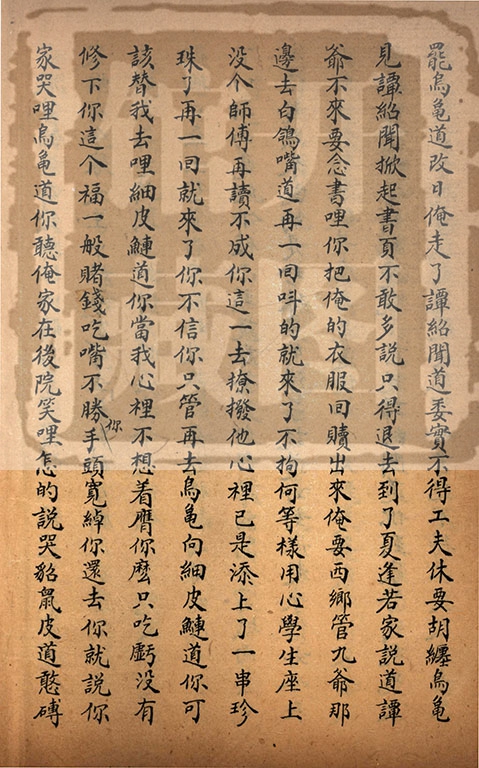 罷烏龜道改日俺走了譚紹聞道委實不得工夫休要胡纏烏龜
見譚紹聞掀起書頁不敢多說只得退去到了夏逢若家說道譚
爺不來要念書哩你把俺的衣服回贖出來俺要西鄉管九爺那
邊去白鴿嘴道再一回呌的就來了不拘何等樣用心學生座上
没个師傅再讀不成你這一去撩撥他心裡已是添上了一串珍
珠了再一回就來了你不信你只管再去烏龜向細皮鰱道你可
該替我去哩細皮鰱道你當我心裡不想着膺你麽只吃虧没有
修下你這个福一般賭錢吃嘴不勝你手頭寬綽你還去你就說你
家哭哩烏龜道你聽俺家在後院笑哩怎的說哭貂鼠皮道憨磚